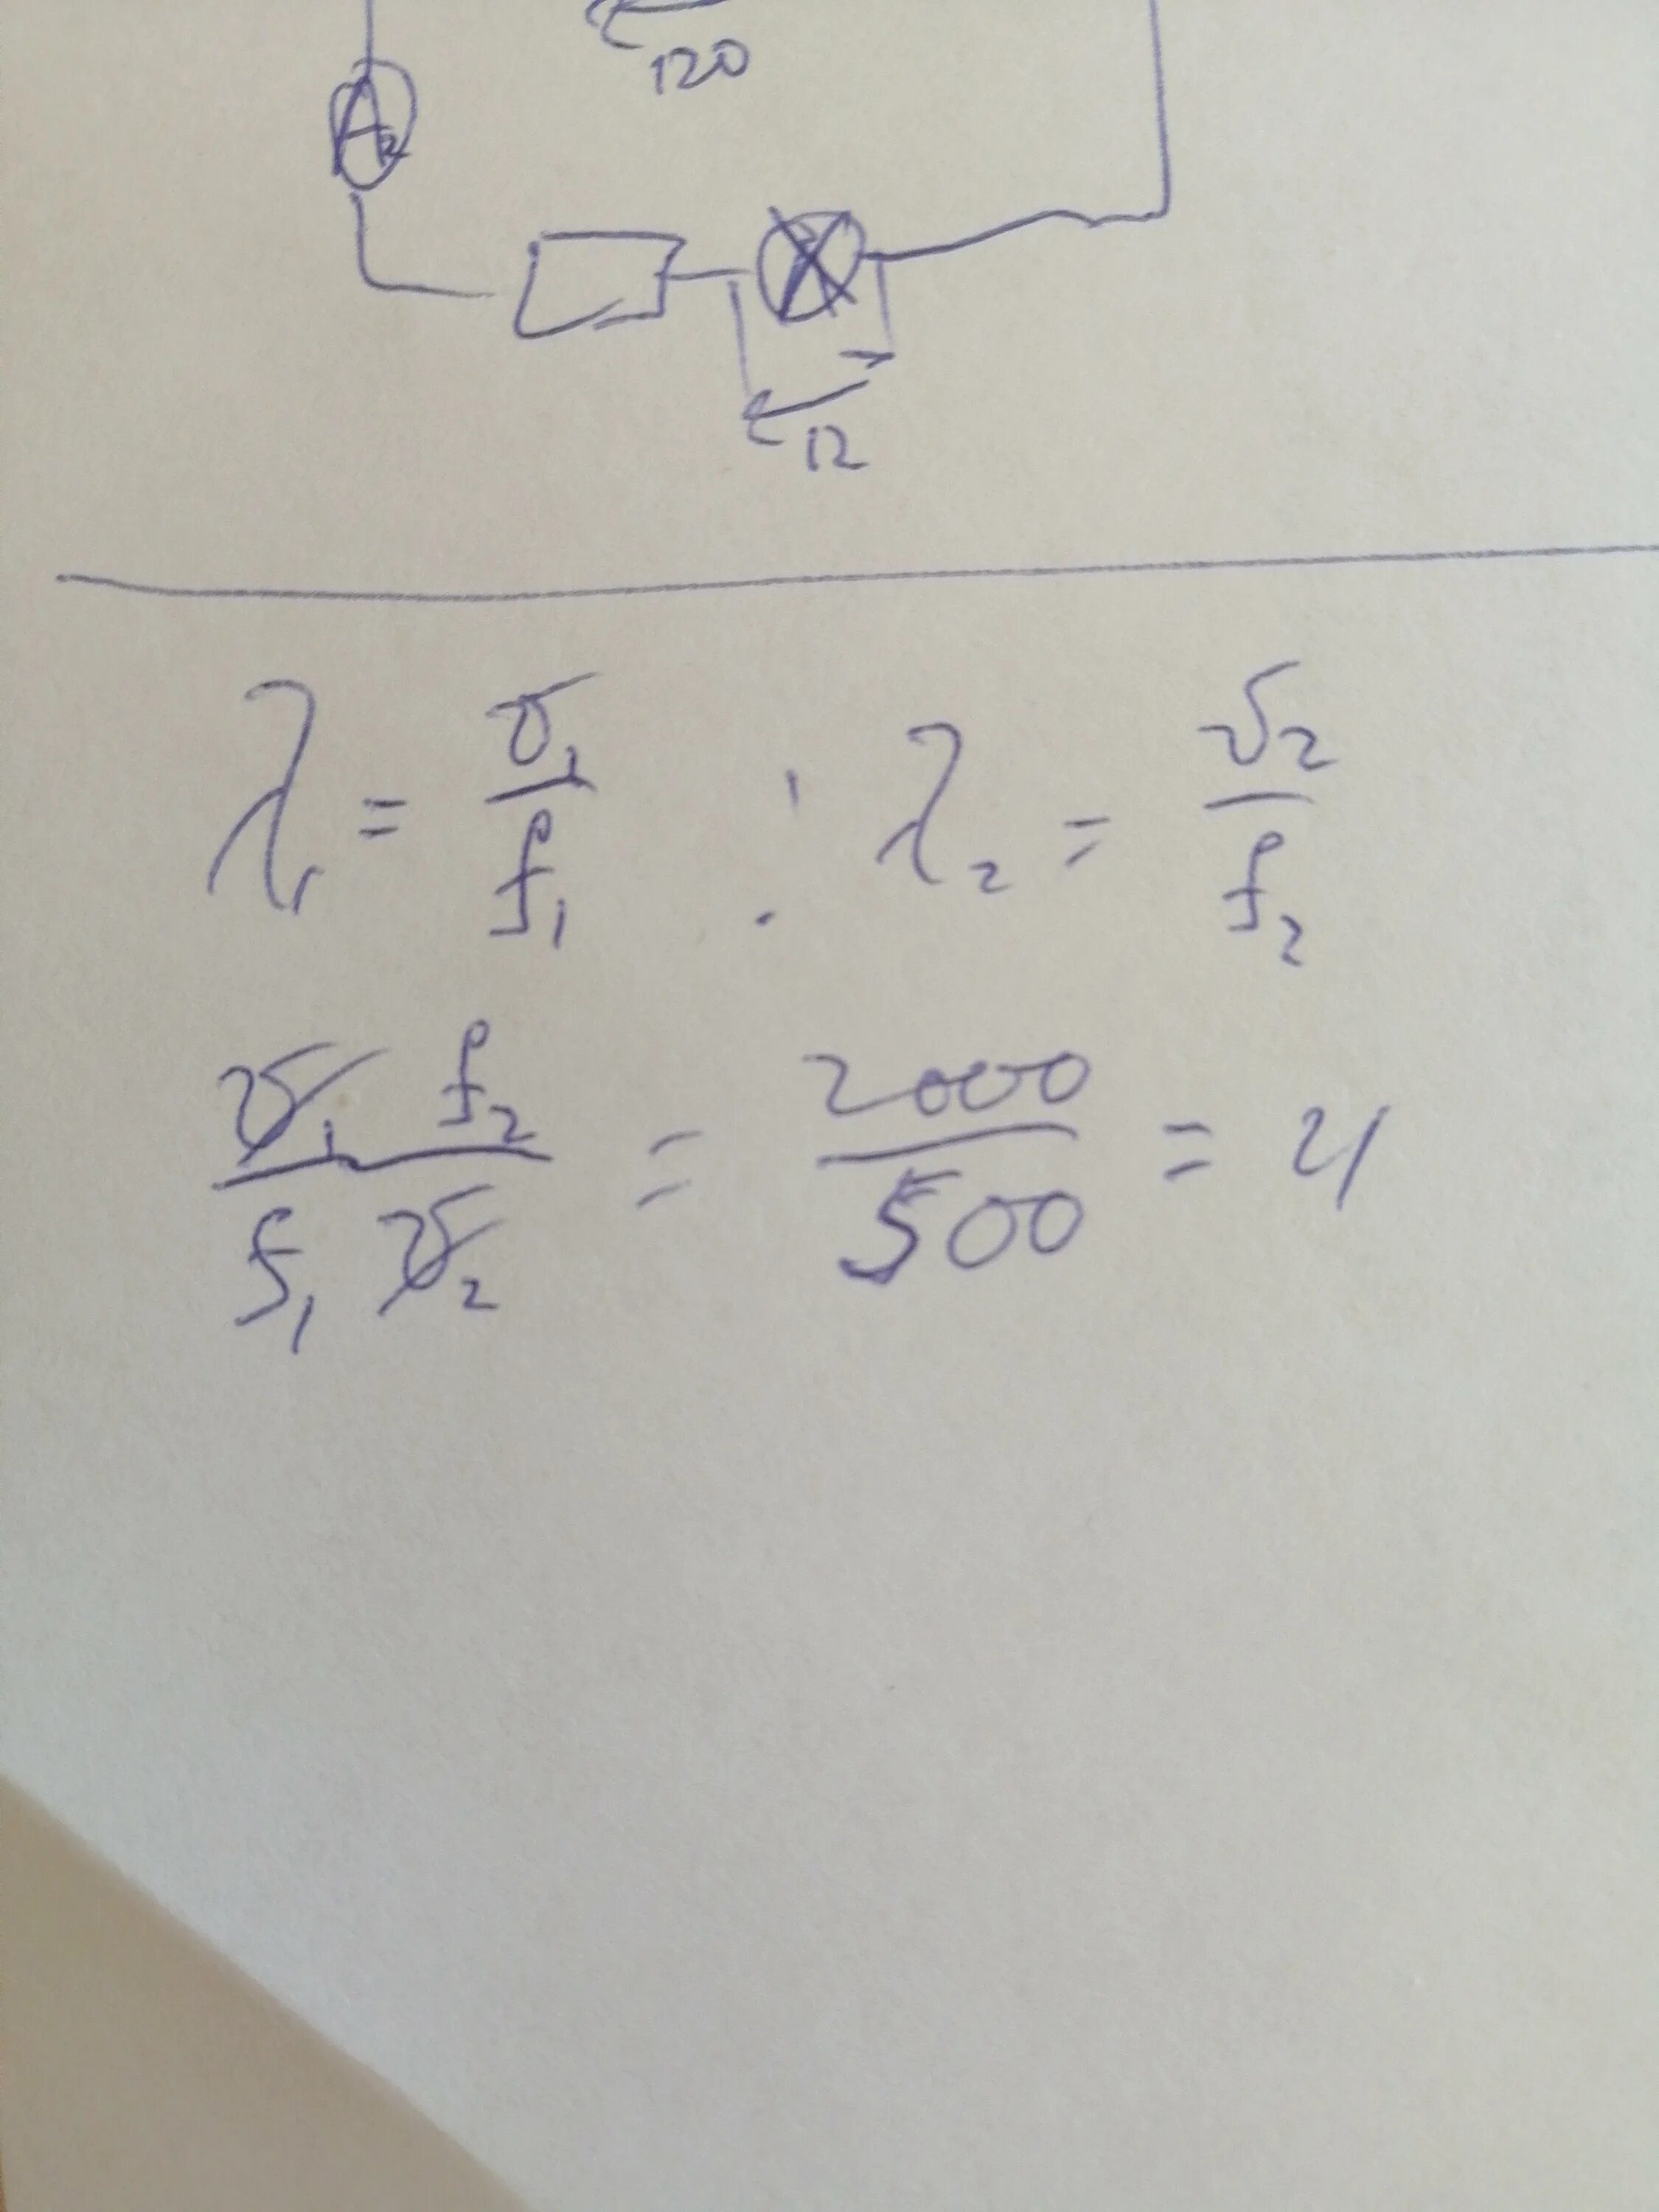 120
A2
12
λ₁ = v₁/f₁ : λ₂ = v₂/f₂
v₁ f₂ / f₁ v₂ = 2000/500 = 4